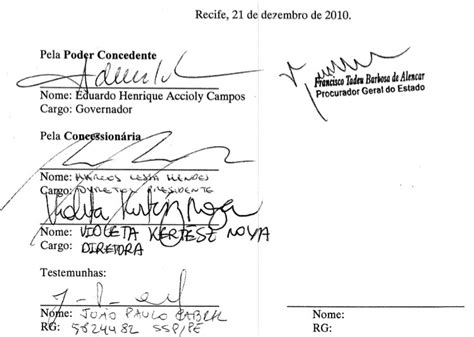 Recife, 21 de dezembro de 2010.
Pela Poder Concedente
Nome: Eduardo Henrique Accioly Campos
Cargo: Governador
Francisco Tadeu Barbosa de Alencar
Procurador Geral do Estado
Pela Concessionária
Nome: MARCOS LESSA MENDES
Cargo: DIRETOR PRESIDENTE
Violeta Kertész Noya
Nome: VIOLETA KERTÉSZ NOYA
Cargo: DIRETORA
Testemunhas:
Nome: JOÃO PAULO
RG: 5824482 SSP/PE
Nome:
RG: